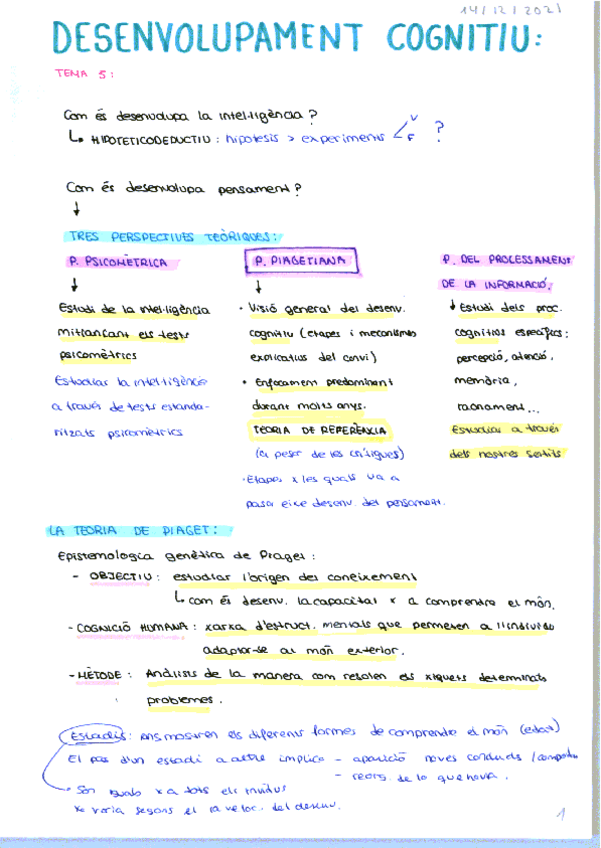 14/12/2021
DESENVOLUPAMENT COGNITIU:
TEMA 5:
Com és desenvolupa la intel·ligència?
↳ HIPOTETICODEDUCTIU: hipotesis > experiments < V F ?
Com és desenvolupa pensament?
↓
TRES PERSPECTIVES TEÒRIQUES:
P. PSICOMÈTRICA
↓
Estudi de la intel·ligència
mitjançant els tests
psicomètrics
Estudiar la intel·ligència
a través de tests estanda-
ritzats psicomètrics
P. PIAGETIANA
↓
• Visió general del desenv.
cognitiu (etapes i mecanismes
explicatius del canvi)
• Enfocament predominant
durant molts anys.
TEORIA DE REFERÈNCIA
(a pesar de les crítiques)
• Etapes x les quals va a
pasar eixe desenv. del pensament.
P. DEL PROCESSAMENT
DE LA INFORMACIÓ.
↓ Estudi dels proc.
cognitius específics:
percepció, atenció,
memòria,
raonament...
Estudiar a través
dels nostres sentits
LA TEORIA DE PIAGET:
Epistemologia genètica de Piaget:
- OBJECTIU: estudiar l'origen del coneixement
↳ com és desenv. la capacitat x a comprendre el món.
- COGNICIÓ HUMANA: xarxa d'estruct. mentals que permeten a l'individu
adaptar-se al món exterior.
- MÈTODE: Anàlisis de la manera com resolen els xiquets determinats
problemes.
Estadis: ens mostren els diferents formes de comprendre el món (edat)
El pas d'un estadi a altre implica - aparició noves conducts /
- reorg. de lo que havia.
Són iguals x a tots els
x varia segons el la veloc. del desenv.
1